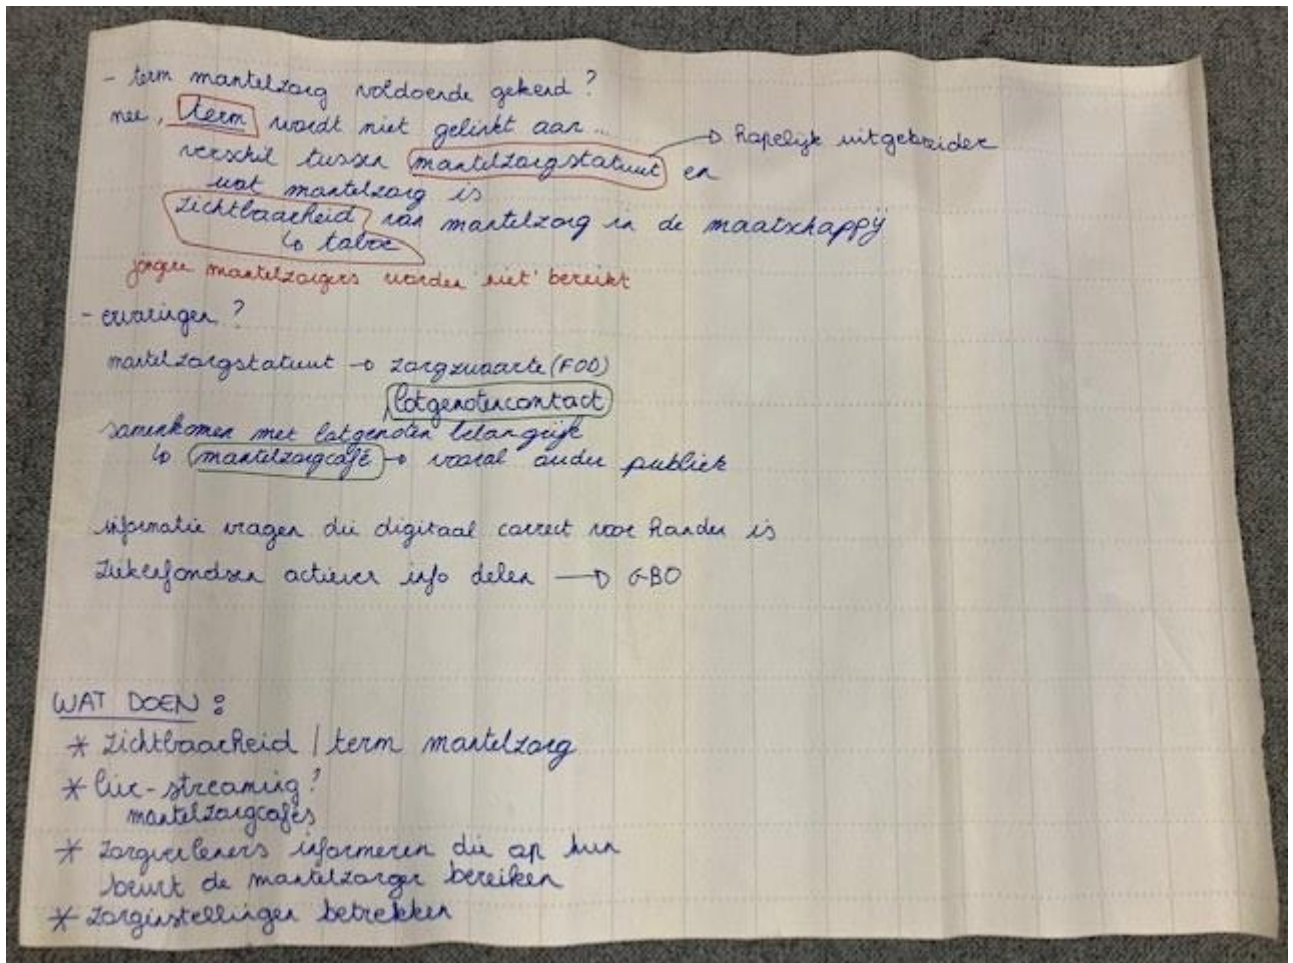 - term mantelzorg voldoende gekend?
nee, term wordt niet gelinkt aan...
verschil tussen mantelzorgstatuut en → hopelijk uitgebreider
wat mantelzorg is
zichtbaarheid van mantelzorg in de maatschappij
↳ taboe
jongere mantelzorgers worden niet bereikt
- ervaringen?
mantelzorgstatuut → zorgzwaarte (FOD)
lotgenotencontact
samenkomen met lotgenoten belangrijk
↳ mantelzorgcafé → vooral ouder publiek
informatie vragen die digitaal correct voor handen is
ziekenfondsen actiever info delen → GBO
WAT DOEN:
* zichtbaarheid / term mantelzorg
* live-streaming?
mantelzorgcafés
* zorgverleners informeren die op hun
beurt de mantelzorger bereiken
* zorginstellingen betrekken